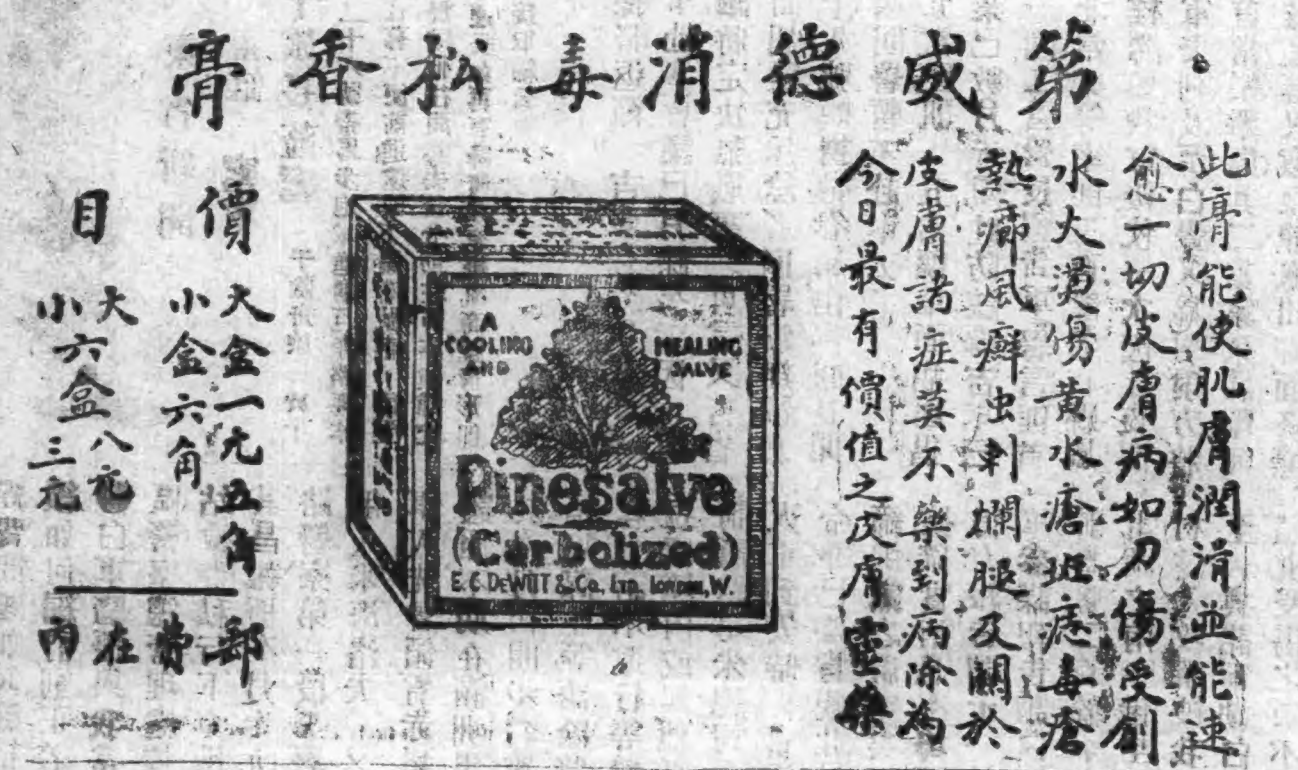 第威德消毒松香膏
此膏能使肌膚潤滑並能速
愈一切皮膚病如刀傷受創
水火燙傷黃水瘡斑痣毒瘡
熱瘰風癬虫刺爛腿及關於
皮膚諸症莫不藥到病除為
今日最有價值之皮膚靈藥
A
COOLING
AND
HEALING
SALVE
Pinesalve
(Carbolized)
E.C. DEWITT & Co., LTD. LONDON, W.
價目
大盒一元五角
小盒六角
大六盒八元
小六盒三元
郵費在內